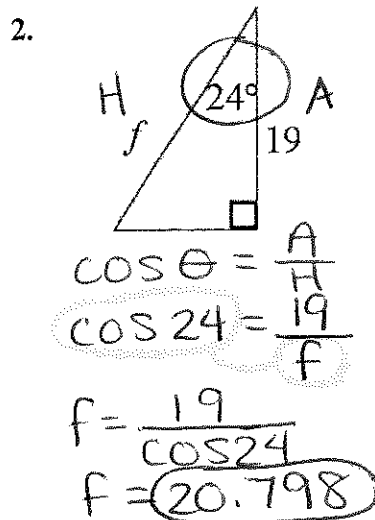 2.
H 24° A
f 19
cos θ = A/H
cos 24 = 19/f
f = 19/cos24
f = 20.798